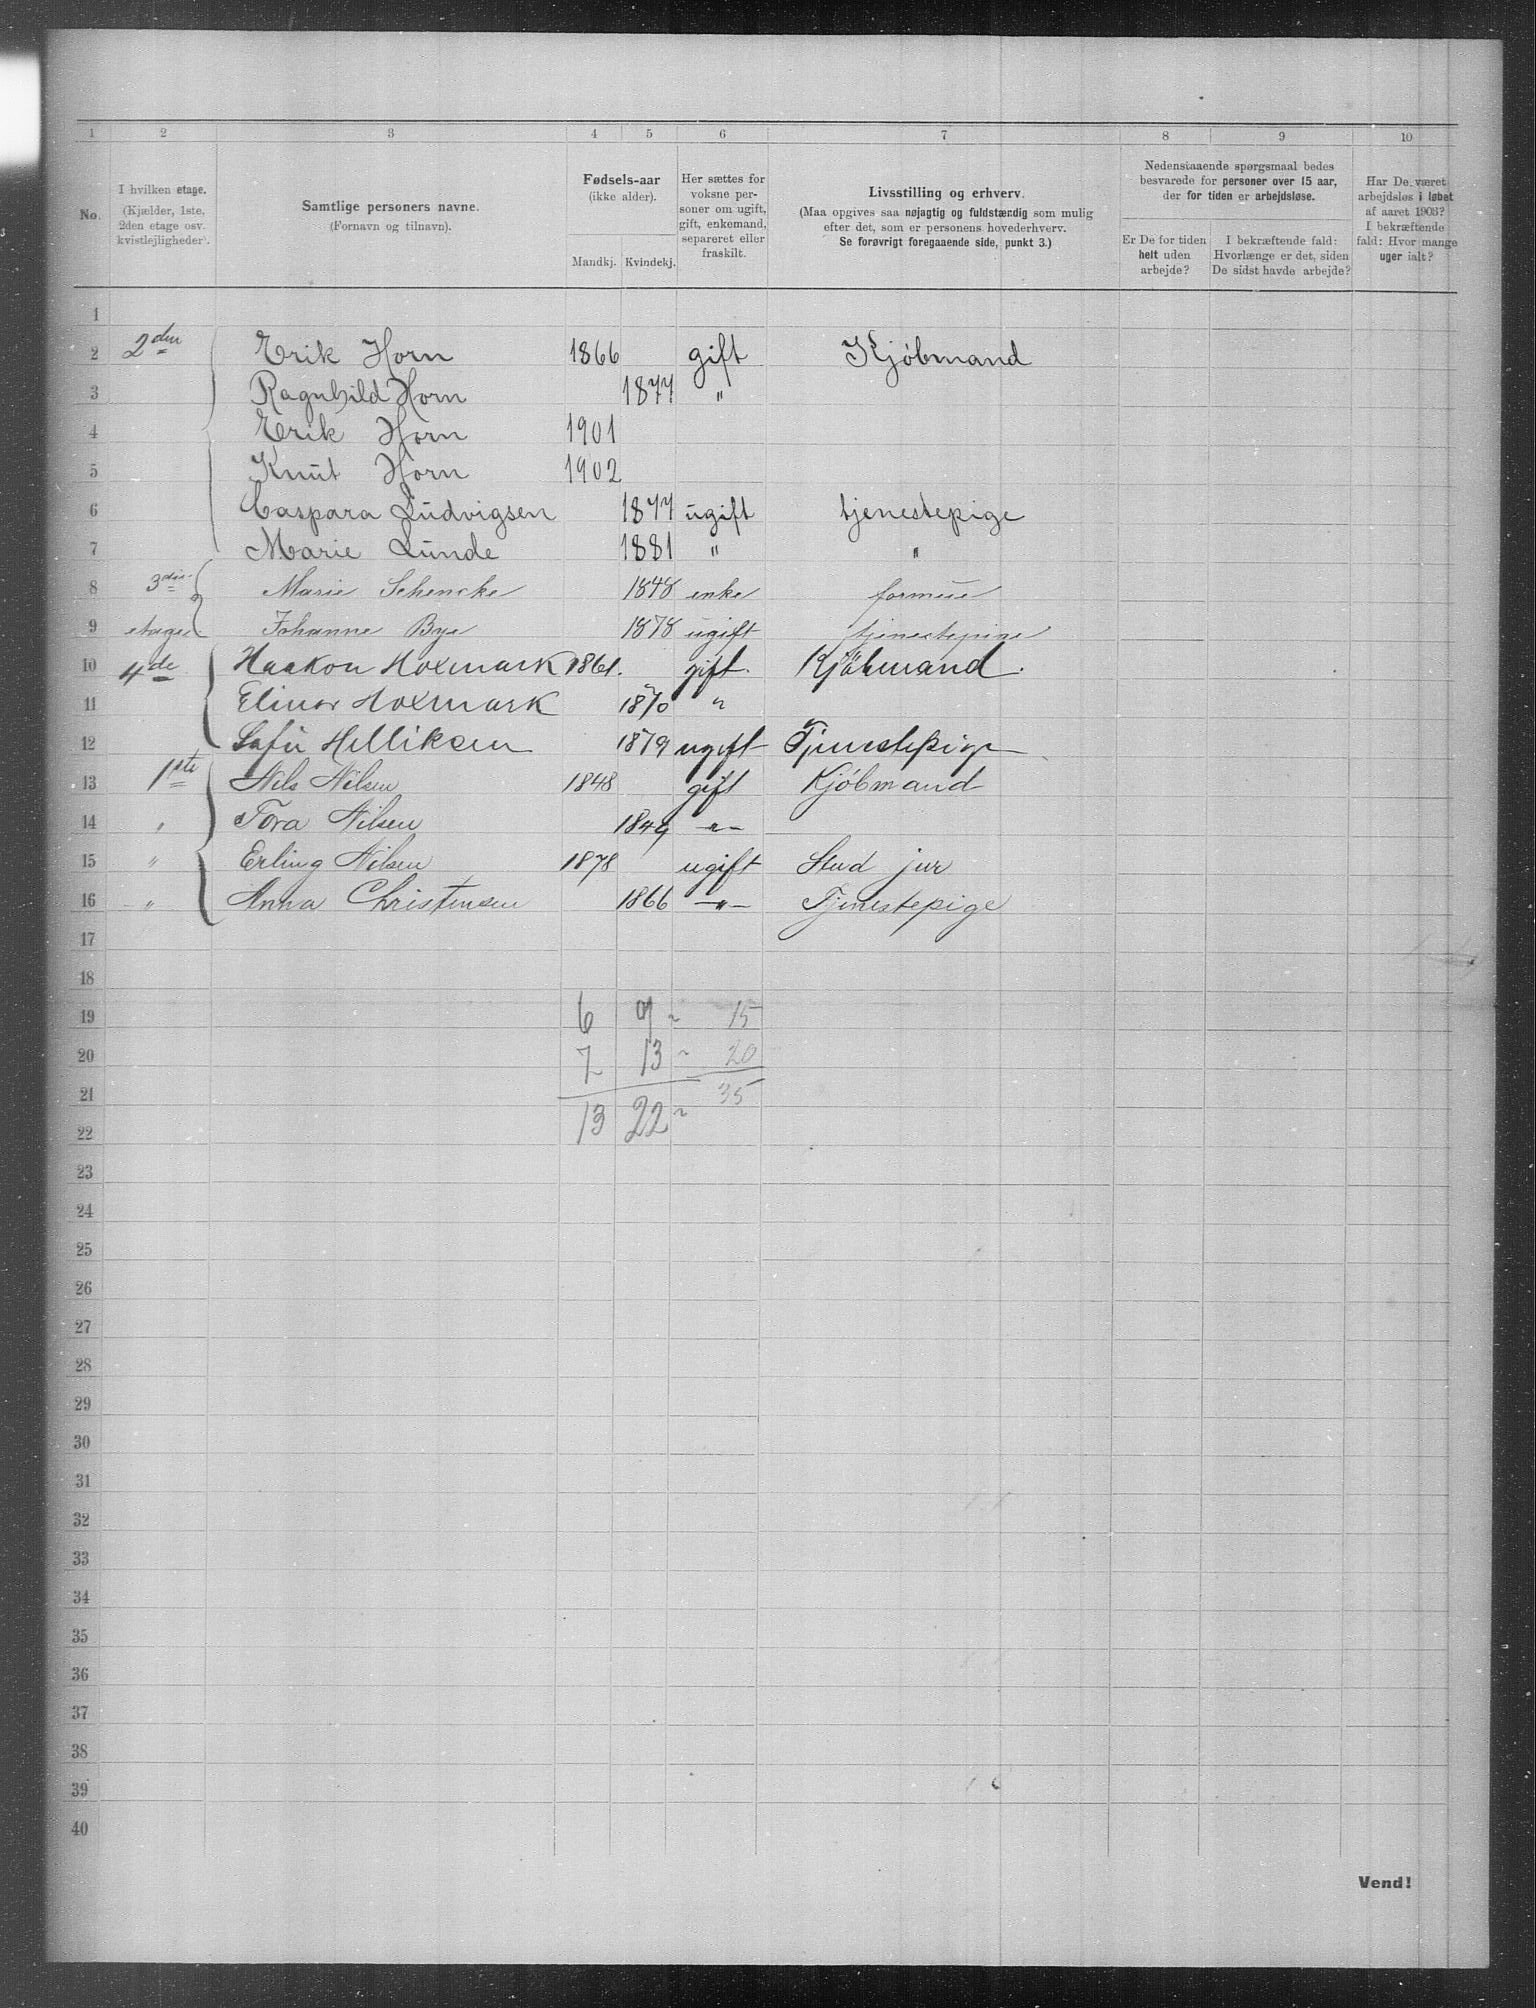 1 2 3 4 5 6 7 8 9 10
No.
I hvilken etage. (Kjælder, 1ste, 2den etage osv. kvistlejligheder).
Samtlige personers navne. (Fornavn og tilnavn).
Fødsels-aar (ikke alder).
Mandkj. Kvindekj.
Her sættes for voksne personer om ugift, gift, enkemand, separeret eller fraskilt.
Livsstilling og erhverv.
(Maa opgives saa nøjagtig og fuldstændig som mulig efter det, som er personens hovederhverv.
Se forøvrigt foregaaende side, punkt 3.)
Nedenstaaende spørgsmaal bedes besvarede for personer over 15 aar, der for tiden er arbejdsløse.
Er De for tiden helt uden arbejde?
I bekræftende fald: Hvorlænge er det, siden De sidst havde arbejde?
Har De været arbejdsløs i løbet af aaret 1903? I bekræftende fald: Hvor mange uger ialt?
1
2 2den Erik Horn 1866 gift Kjøbmand
3 Ragnhild Horn 1877 "
4 Erik Horn 1901
5 Knut Horn 1902
6 Caspara Ludvigsen 1877 ugift tjenestepige
7 Marie Lunde 1881 " "
8 3die Marie Schencke 1848 enke formue
9 etage Johanne Bye 1878 ugift tjenestepige
10 4de Haakon Hoxmark 1861. gift. Kjøbmand.
11 Elinor Hoxmark 1870 "
12 Helliksen 1879 ugift Tjenestepige
13 1ste Nils Nilsen 1848 gift Kjøbmand
14 " Tora Nilsen 1849 -"-
15 " Erling Nilsen 1878 ugift Stud jur
16 " Anna Christensen 1866 -"- Tjenestepige
17
18
19 6 9 ~ 15
20 7 13 ~ 20
21 35
22 13 22 ~
23
24
25
26
27
28
29
30
31
32
33
34
35
36
37
38
39
40
Vend!